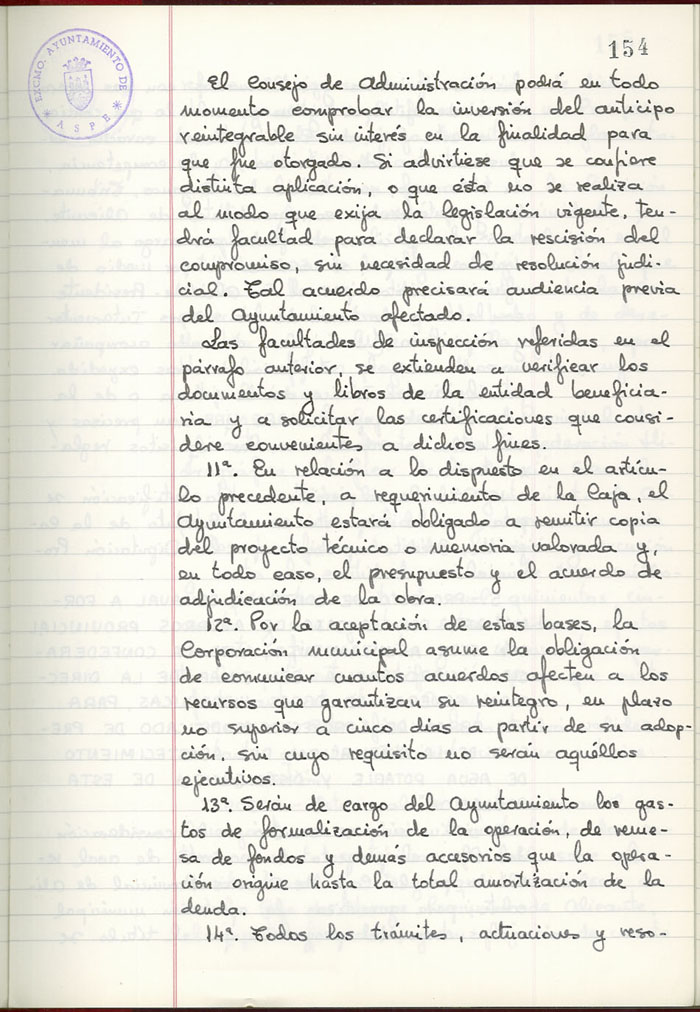 EXCMO. AYUNTAMIENTO DE
ASPE
154
El Consejo de Administración podrá en todo
momento comprobar la inversión del anticipo
reintegrable sin interés en la finalidad para
que fue otorgado. Si advirtiese que se confiere
distinta aplicación, o que ésta no se realiza
al modo que exija la legislación vigente, ten-
drá facultad para declarar la rescisión del
compromiso, sin necesidad de resolución judi-
cial. Tal acuerdo precisará audiencia previa
del Ayuntamiento afectado.
Las facultades de inspección referidas en el
párrafo anterior, se extienden a verificar los
documentos y libros de la entidad beneficia-
ria y a solicitar las certificaciones que consi-
dere convenientes a dichos fines.
11ª. En relación a lo dispuesto en el artícu-
lo precedente, a requerimiento de la Caja, el
Ayuntamiento estará obligado a remitir copia
del proyecto técnico o memoria valorada y,
en todo caso, el presupuesto y el acuerdo de
adjudicación de la obra.
12ª. Por la aceptación de estas bases, la
Corporación municipal asume la obligación
de comunicar cuantos acuerdos afecten a los
recursos que garantizan su reintegro, en plazo
no superior a cinco días a partir de su adop-
ción, sin cuyo requisito no serán aquéllos
ejecutivos.
13ª. Serán de cargo del Ayuntamiento los gas-
tos de formalización de la operación, de reme-
sa de fondos y demás accesorios que la opera-
ción origine hasta la total amortización de la
deuda.
14ª. Todos los trámites, actuaciones y reso-